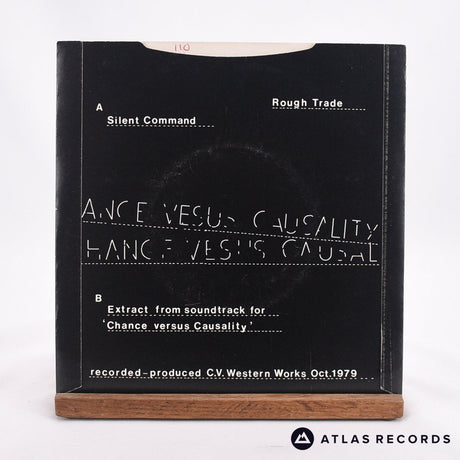 110
A
Rough Trade
Silent Command
ANCE VESUS CAUSALITY
HANCE VESUS CAUSAL
B
Extract from soundtrack for
'Chance versus Causality'
recorded-produced C.V. Western Works Oct.1979
ATLAS RECORDS